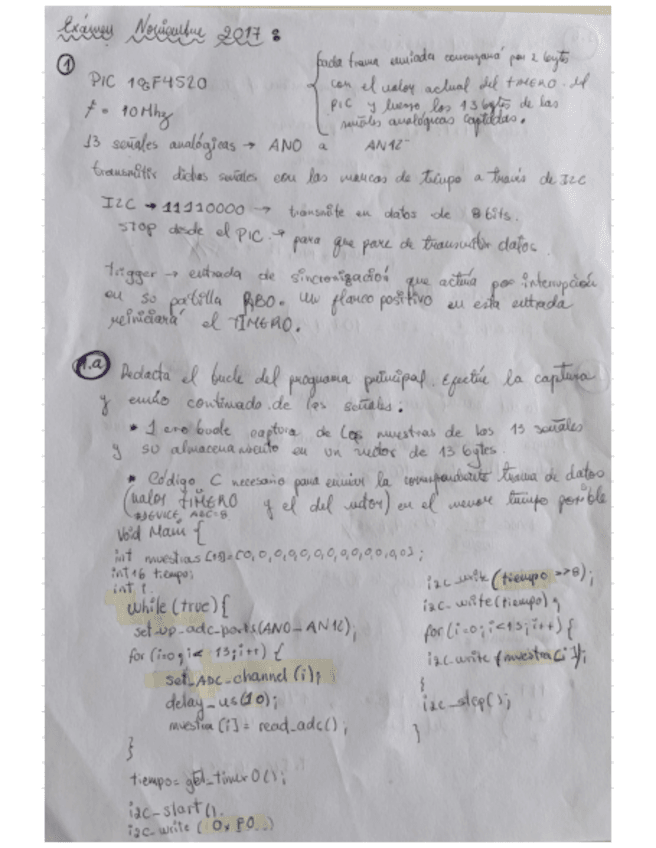 Exámen Noviembre 2017:
①
PIC 18F4520
f = 10Mhz
{cada trama enviada comenzará por 2 bytes
con el valor actual del TIMER0 del
PIC y luego los 13 bytes de las
señales analógicas captadas.
13 señales analógicas → AN0 a AN12
transmitir dichas señales con las marcas de tiempo a través de I2C
I2C → 11110000 → transmite en datos de 8 bits.
STOP desde el PIC → para que pare de transmitir datos.
Trigger → entrada de sincronización que actúa por interrupción
en su patilla RB0. Un flanco positivo en esta entrada
reiniciará el TIMER0.
1.a Redacta el bucle del programa principal. Efectúe la captura
y envío continuado de las señales:
* 1 ero bucle captura de las muestras de las 13 señales
y su almacenamiento en un vector de 13 bytes.
* Código C necesario para enviar la correspondiente trama de datos
(valor TIMER0 y el del vector) en el menor tiempo posible
#DEVICE ADC=8
Void Main {
int muestras [13]={0,0,0,0,0,0,0,0,0,0,0,0,0};
int16 tiempo;
int i.
while (true){
set_up_adc_ports(AN0_AN12);
for (i=0; i< 13; i++) {
set_ADC_channel (i);
delay_us(10);
muestra [i] = read_adc();
}
tiempo= get_timer0();
i2c_start().
i2c_write (0xF0)
i2c_write (tiempo >>8);
i2c_write (tiempo);
for (i=0; i<13; i++) {
i2c_write (muestra[i]);
}
i2c_stop();
}